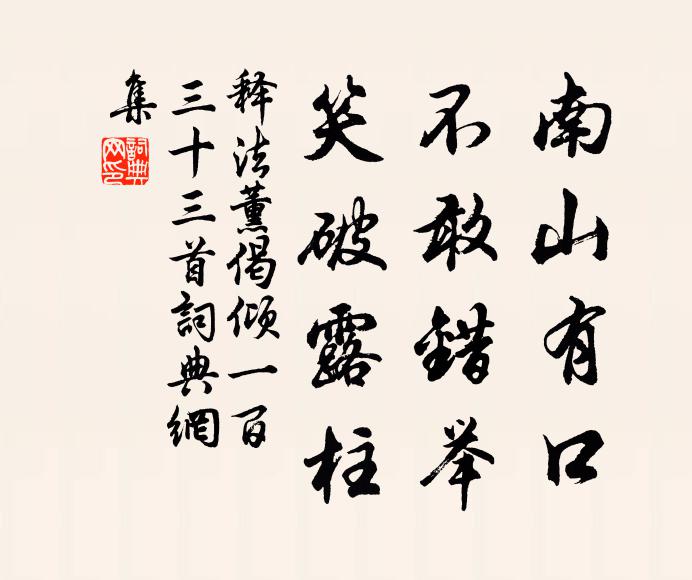 南山有口
不敢錯举
笑破露柱
释法薰偈倾一百
三十三首詞典網
集
詞典
网印